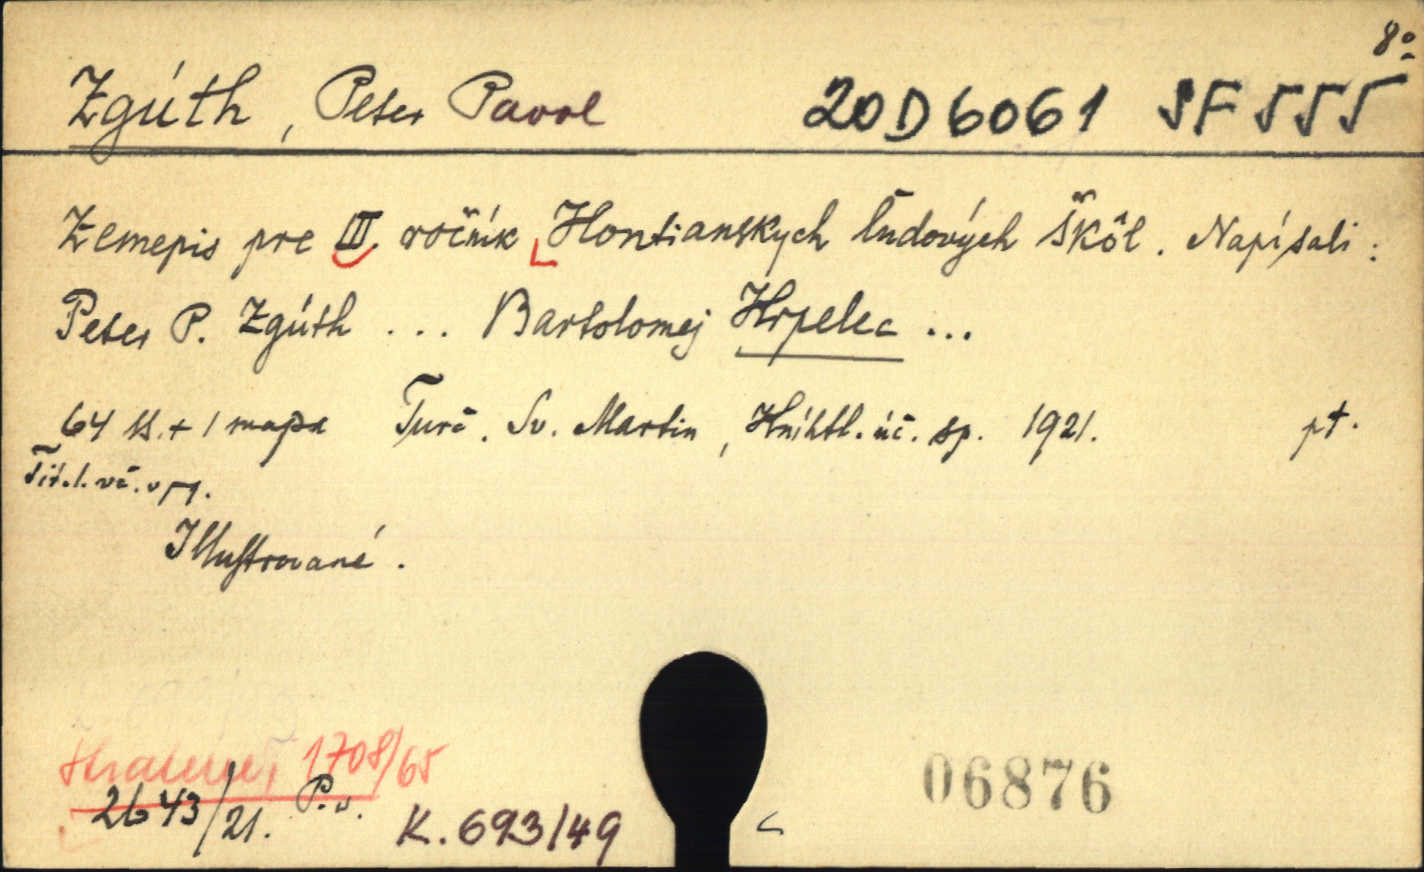 8°
Zgúth, Peter Pavol 20D6061 SF 555
Zemepis pre III. ročník Hontianskych ľudových škôl. Napísali:
Peter P. Zgúth ... Bartolomej Hrpelec ...
64 s. + 1 mapa Turč. Sv. Martin, Kníhtl. úč. sp. 1921. pt.
Illustrované.
1708/65
2643/21. P. v.
K. 693/49
06876